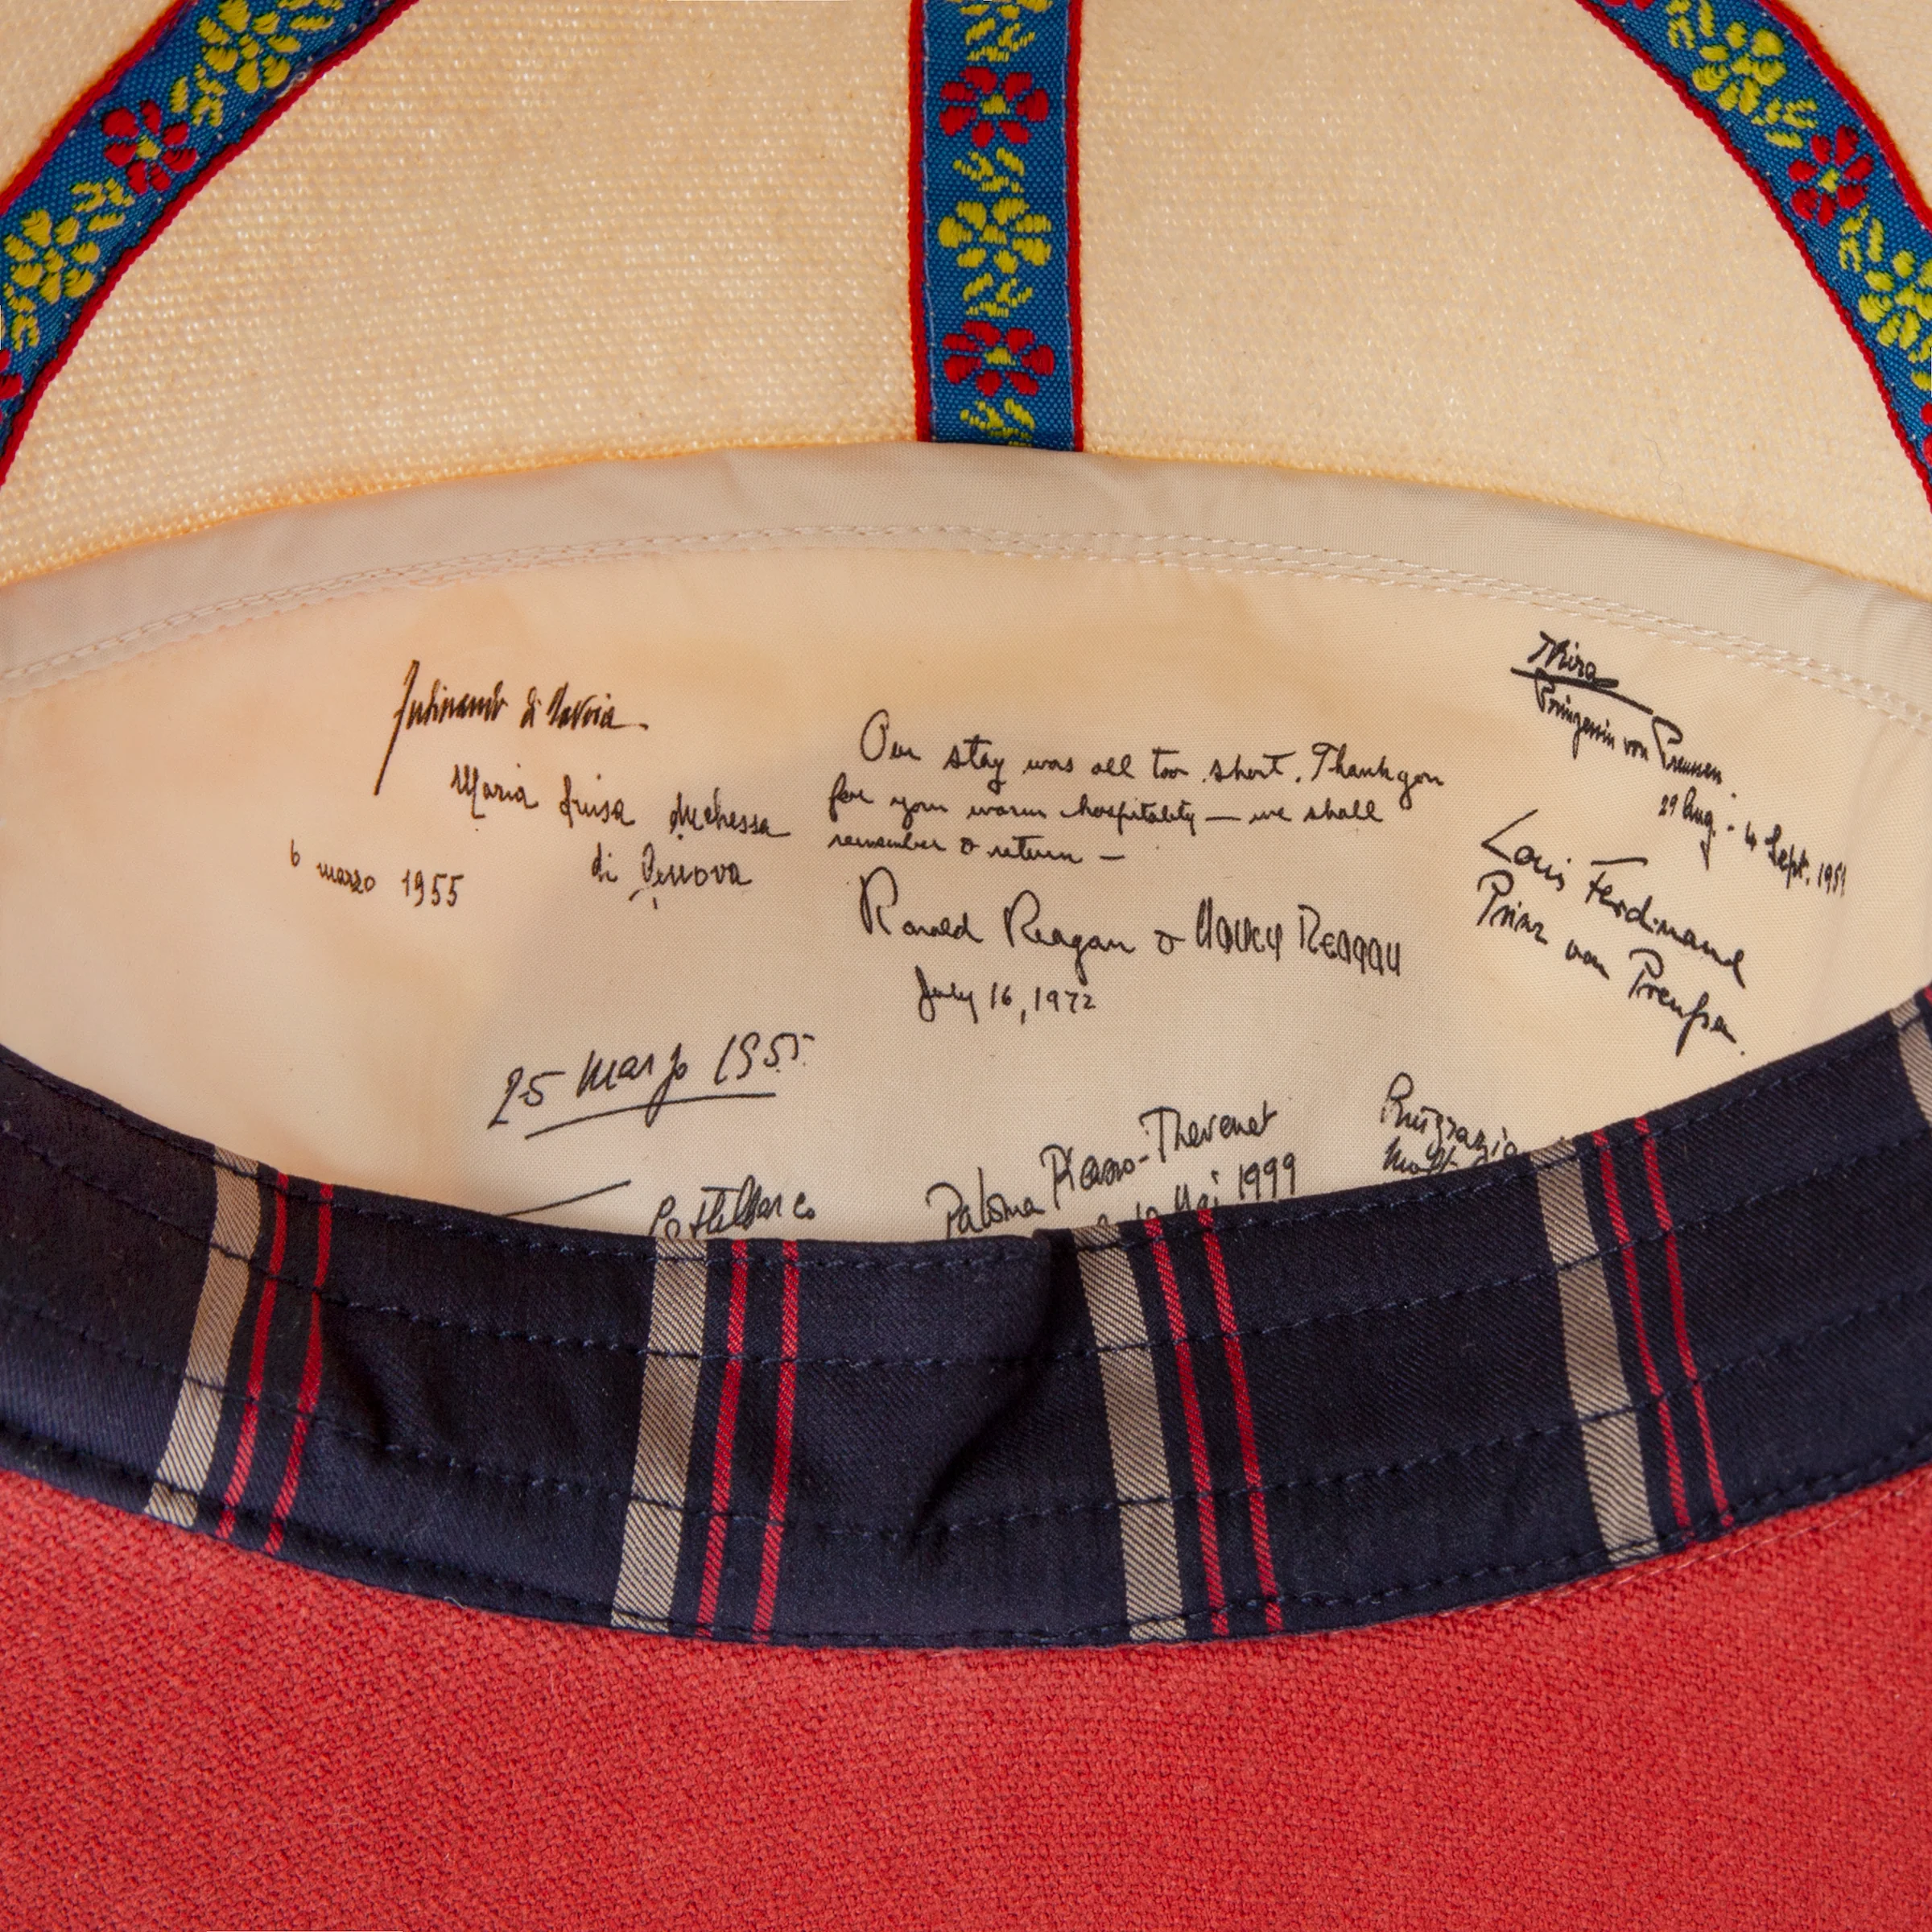 Ferdinando di Savoia
Maria Luisa duchessa
di Genova
6 marzo 1955
Our stay was all too short. Thank you
for your warm hospitality — we shall
remember & return —
Ronald Reagan & Nancy Reagan
July 16, 1972
Kira
Prinzessin von Preussen.
29 Aug. - 4 Sept. 1951
Louis Ferdinand
Prinz von Preußen.
25 Marzo 1955
Paloma Picasso-Thevenet
Mai 1999
Ringrazio